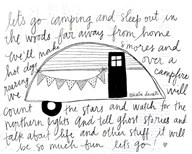 let's go camping and sleep out in
the woods far away from home
We'll make s'mores and
hot dogs over a
campfire
we'll
count the stars and watch for the
northern lights And tell ghost stories and
talk about life and other stuff. it will
be so much fun lets go!